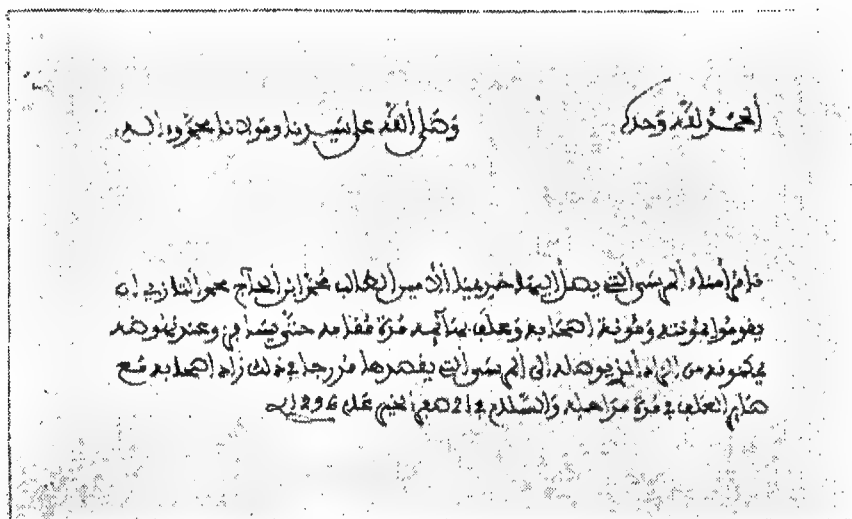 ألحمد لله وحده وصلى ألله على سيدنا ومولانا محمد وءاله
نامر أمناء ألمرسى ألتي يصل أليها خديمنا ألأمين ألطالب محمد ابن ألحاج محمد ألتازي أن
يقوموا بمونته ومونة أصحابه وعلف بهائمه مدة مقامه حتى يسافر وعند نهوضه
يمكنونه من الزاد ألذي يوصله إلى ألمرسى ألتي يقصدها مدرجا في ذلك زاد أصحابه مع
صاير العلف في مدة مراحله والسلام في 21 صفر الخير عام 1296